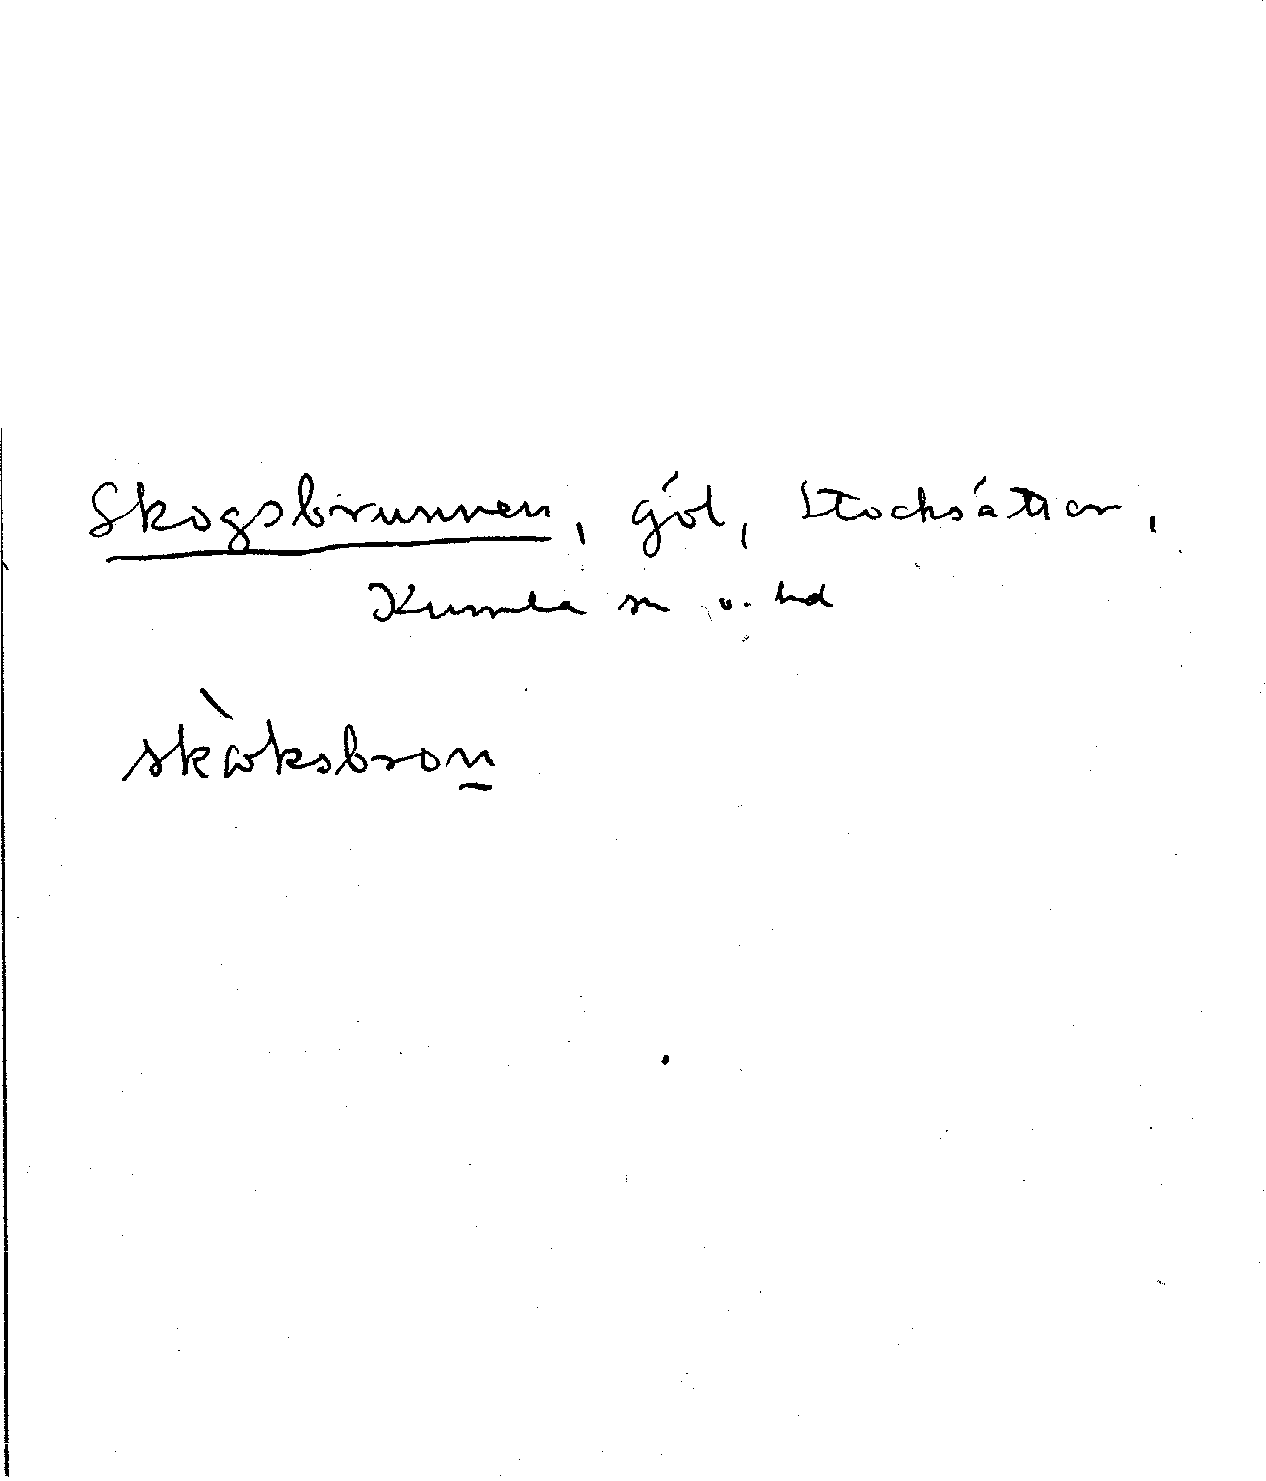 Skogsbrunnen, göl, Stocksätter,
Kumla sn o. hd
skὼksbron̲